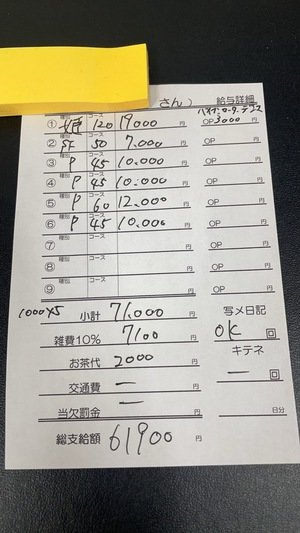 さん) 給与詳細
① 種別 コース 120 19.000 円 OP 3000 円
② 種別 SF コース 50 7.000 円 OP 円
③ 種別 P コース 45 10.000 円 OP 円
④ 種別 P コース 45 10.000 円 OP 円
⑤ 種別 P コース 60 12.000 円 OP 円
⑥ 種別 P コース 45 10.000 円 OP 円
⑦ 種別 コース 円 OP 円
⑧ 種別 コース 円 OP 円
⑨ 種別 コース 円 OP 円
1000×5 小計 71.000 円 写メ日記
雑費10% 7100 円 OK 回
お茶代 2000 円 キテネ
交通費 ー 円 ー 回
当欠罰金 ー 円 日分
総支給額 61900 円